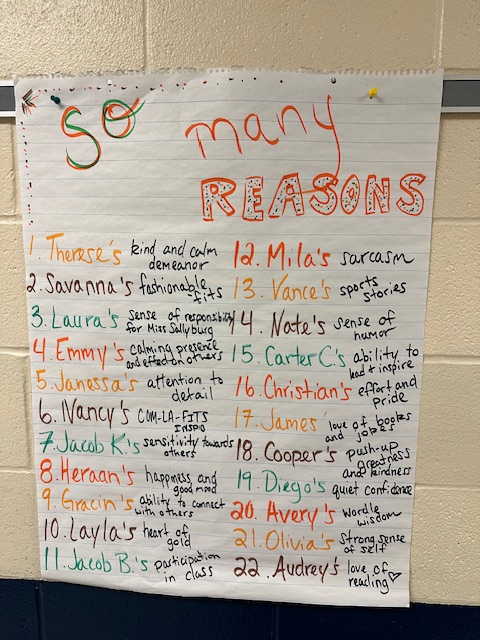 So many
REASONS
1. Therese's kind and calm
demeanor
2. Savanna's fashionable
fits
3. Laura's sense of responsibility
for Miss Sallyburg
4. Emmy's calming presence
and effect on others
5. Janessa's attention to
detail
6. Nancy's COM-LA-FITS
INSPO
7. Jacob K's sensitivity towards
others
8. Heraan's happiness and
good mood
9. Gracin's ability to connect
with others
10. Layla's heart of
gold
11. Jacob B.'s participation
in class
12. Mila's sarcasm
13. Vance's sports
stories
14. Nate's sense of
humor
15. Carter C.'s ability to
lead + inspire
16. Christian's effort and
pride
17. James' love of books
and jokes
18. Cooper's push-up
greatness
and kindness
19. Diego's quiet confidence
20. Avery's wordle
wisdom
21. Olivia's strong sense
of self
22. Audrey's love of
reading